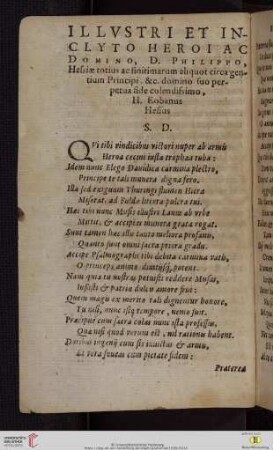 ILLVSTRI ET IN
CLYTO HEROI AC
DOMINO, D. PHILIPPO,
Hessiæ totius ac finitimarum aliquot circa gen
tium Principi. &c. domino suo per
petua fide colendissimo,
H. Eobanus
Hessus
S. D.
QVi tibi vindicibus victori nuper ab armis
Heroa cecini iusta trophæa tuba:
Idem nunc Elego Davidica carmina plectro,
Principe te tali munera digna fero.
Illa sed exiguum Thuringi flumen Hiera
Miserat. ad Fuldæ littera pulcra tui.
Hæc tibi nunc Musis illustris Lanus ab urbe
Mittit, & accipies munera grata rogat.
Sunt tamen hæc illis tanto meliora profanis,
Quanto sunt omni sacra petita gradu.
Accipe Psalmographi tibi debita carmina vatis,
O princeps animo
Nam quia tu nostras potuisti reddere Musas,
Iussisti & patriæ dulcis amore frui:
Quem magis ex merito tali dignemur honore,
Tu iussi, nunc istoque tempore, nemo fuit.
Præcipue cum sacra colas nunc ista professus,
Qua nisi quod verum est, nil rationis habent.
Dotibus ingenij cum sis invictus & armis,
Et vera foveas cum pietate fidem:
Præterea